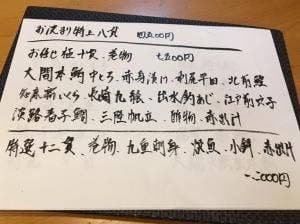 お決め特上八貫 四五〇〇円
お任せ極十貫、巻物 七五〇〇円
大間本鮪中とろ、赤身漬け、利尻平目、北前鰹
新いくら、長崎九絵、出水釣あじ、江戸前穴子
淡路春子鯛、三陸帆立、酢物、赤出汁
特選十二貫、巻物、九重刺身、焚魚、小鉢、赤出汁
一二〇〇〇円